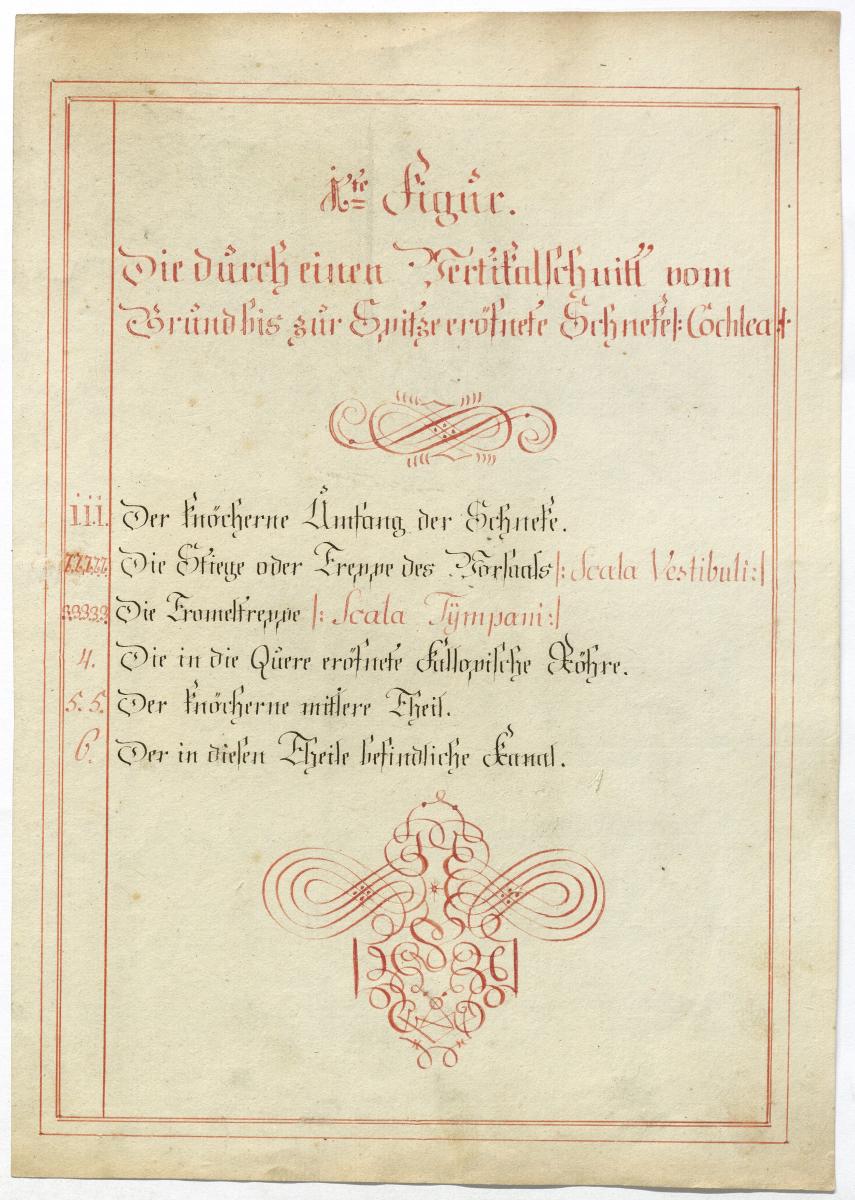 1te Figur.
Die durch einen Vertikalschnitt vom
Grund bis zur Spitze eröfnete Schneke |: Cochlea :|
1.1.1. Der knöcherne Umfang der Schneke.
2.2.2.2.2. Die Stiege oder Treppe des Vorsaals |: Scala Vestibuli :|
3.3.3.3.3. Die Tromeltreppe |: Scala Tÿmpani :|
4. Die in die Quere eröfnete Fallopische Röhre.
5. 5. Der knöcherne mittlere Theil.
6. Der in diesen Theile befindliche Kanal.